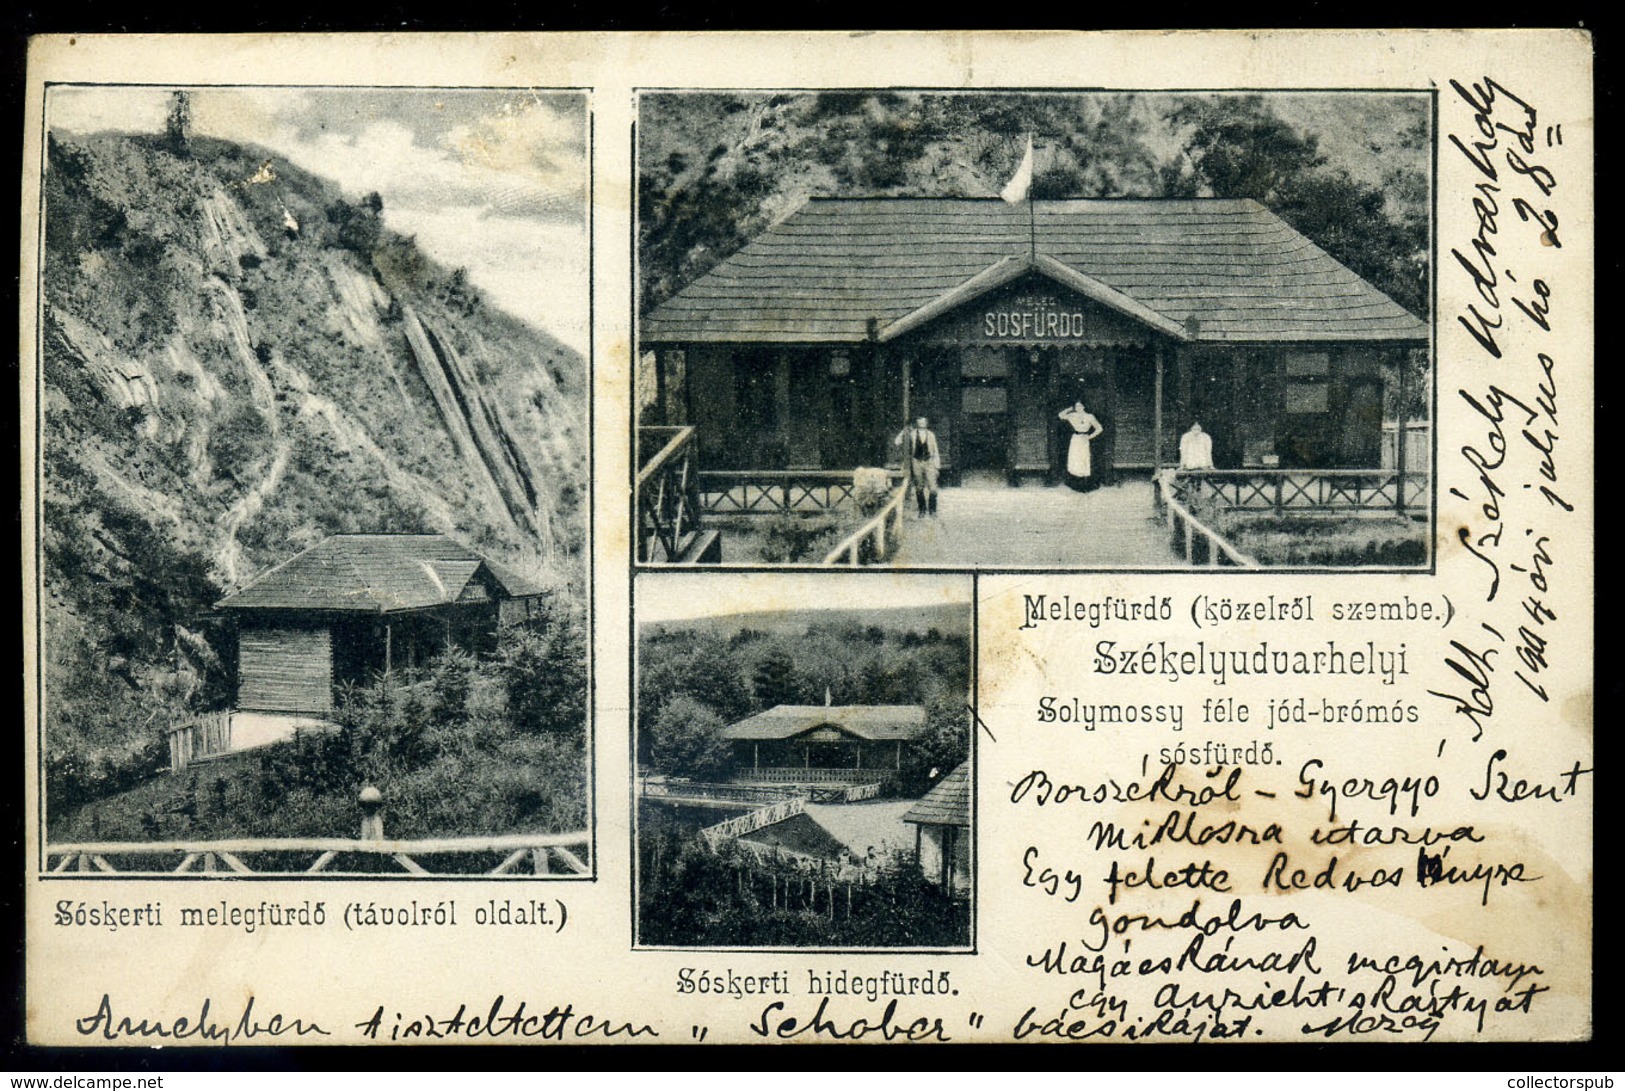 MELEG
SÓSFÜRDŐ
Melegfürdő (közelről szembe.)
Székelyudvarhelyi
Solymossy féle jód-brómós
sósfürdő.
Sóskerti melegfürdő (távolról oldalt.)
Sóskerti hidegfürdő.
Kelt, Székely Udvarhely
1904 évi julius hó 28án
Borszékről - Gyergyó Szent
Miklosra utazva
Egy felette Kedves
gondolva
Magácskának megirtam
egy Anzicht's kártyát
Amelyben tiszteltettem „Schober" bácsikáját.
collectorspub